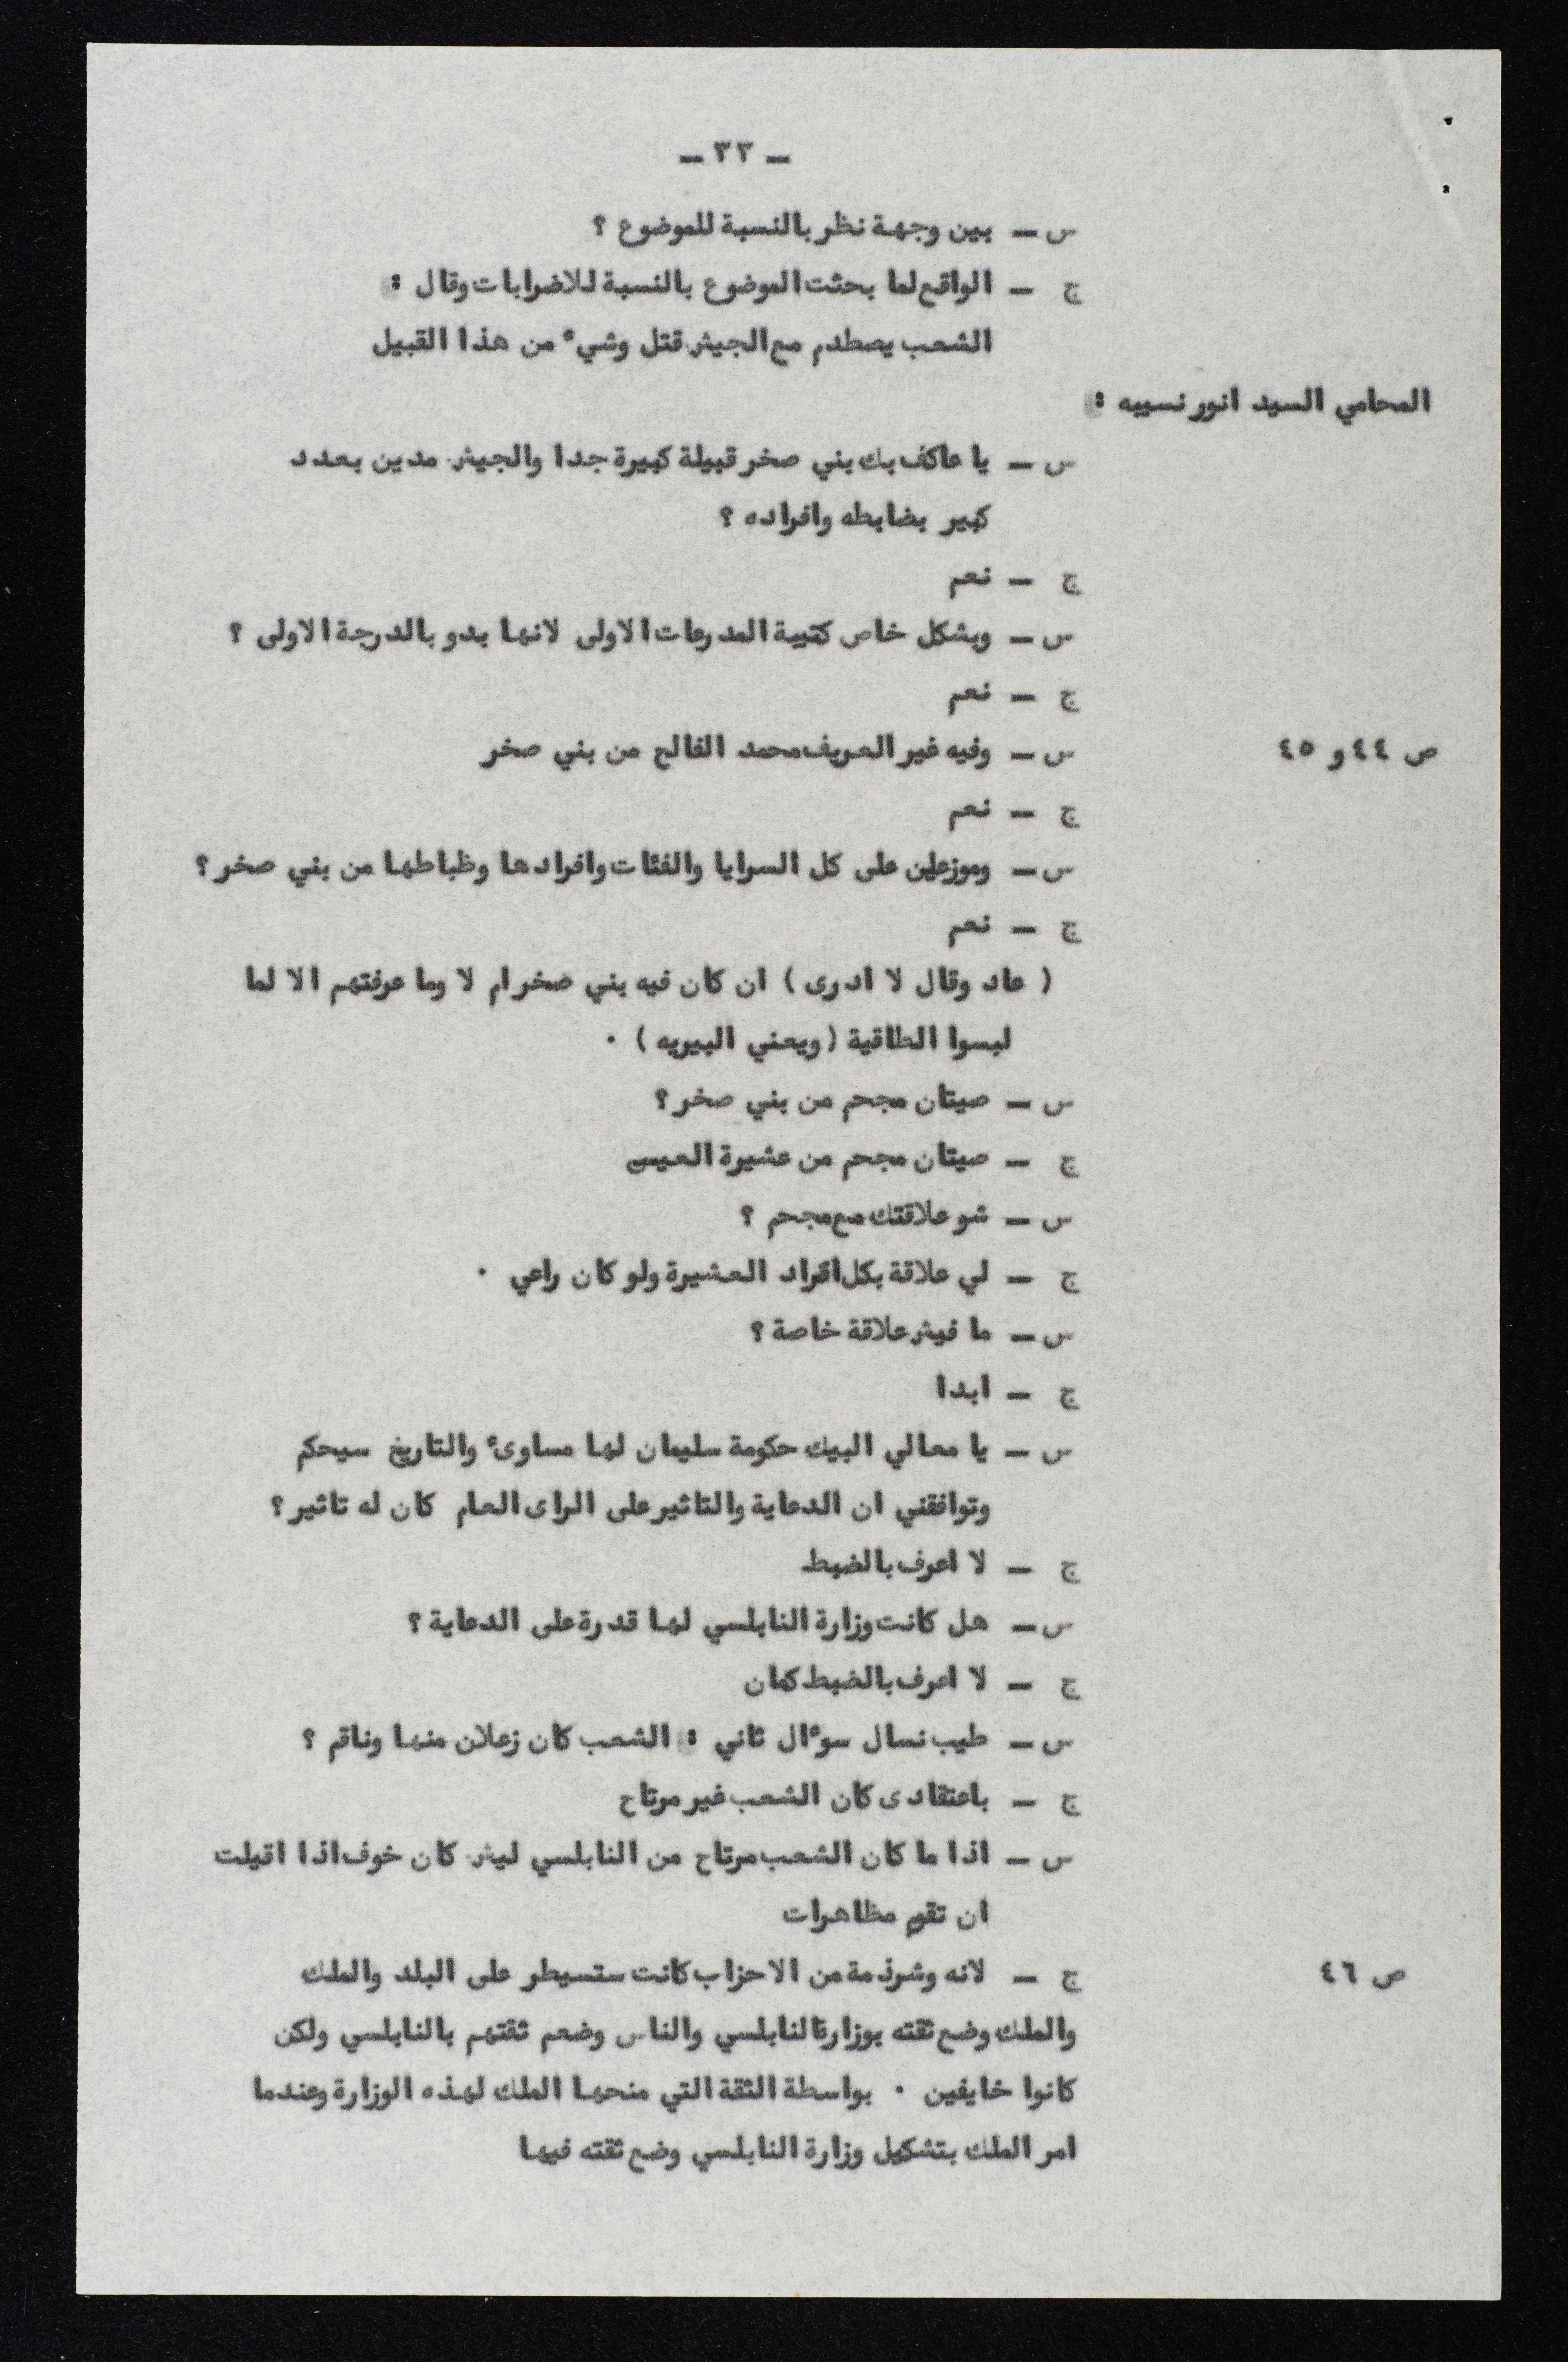 — ٣٣ —
س — بين وجهة نظر بالنسبة للموضوع ؟
ج — الواقع لما بحثت الموضوع بالنسبة للاضرابات وقال :
الشعب يصطدم مع الجيش قتل وشيء من هذا القبيل
المحامي السيد انور نسيبه :
س — يا عاكف بك بني صخر قبيلة كبيرة جدا والجيش مدين بعدد
كبير بضابطه وافراده ؟
ج — نعم
س — وبشكل خاص كتيبة المدرعات الاولى لانها بدو بالدرجة الاولى ؟
ج — نعم
ص ٤٤ و ٤٥ س — وفيه غير العريف محمد الفالح من بني صخر
ج — نعم
س — وموزعين على كل السرايا والفئات وافرادها وظباطها من بني صخر ؟
ج — نعم
( عاد وقال لا ادرى ) ان كان فيه بني صخر ام لا وما عرفتهم الا لما
لبسوا الطاقية ( ويعني البيريه ) ٠
س — صيتان مجحم من بني صخر ؟
ج — صيتان مجحم من عشيرة العيسى
س — شو علاقتك مع مجحم ؟
ج — لي علاقة بكل افراد العشيرة ولو كان راعي ٠
س — ما فيش علاقة خاصة ؟
ج — ابدا
س — يا معالي البيك حكومة سليمان لها مساوىء والتاريخ سيحكم
وتوافقني ان الدعاية والتاثير على الراى العام كان له تاثير ؟
ج — لا اعرف بالضبط
س — هل كانت وزارة النابلسي لها قدرة على الدعاية ؟
ج — لا اعرف بالضبط كمان
س — طيب نسال سوءال ثاني : الشعب كان زعلان منها وناقم ؟
ج — باعتقادى كان الشعب غير مرتاح
س — اذا ما كان الشعب مرتاح من النابلسي ليش كان خوف اذا اقيلت
ان تقوم مظاهرات
ص ٤٦ ج — لانه وشرذمة من الاحزاب كانت ستسيطر على البلد والملك
والملك وضع ثقته بوزارة النابلسي والناس وضعم ثقتهم بالنابلسي ولكن
كانوا خايفين ٠ بواسطة الثقة التي منحها الملك لهذه الوزارة وعندما
امر الملك بتشكيل وزارة النابلسي وضع ثقته فيها